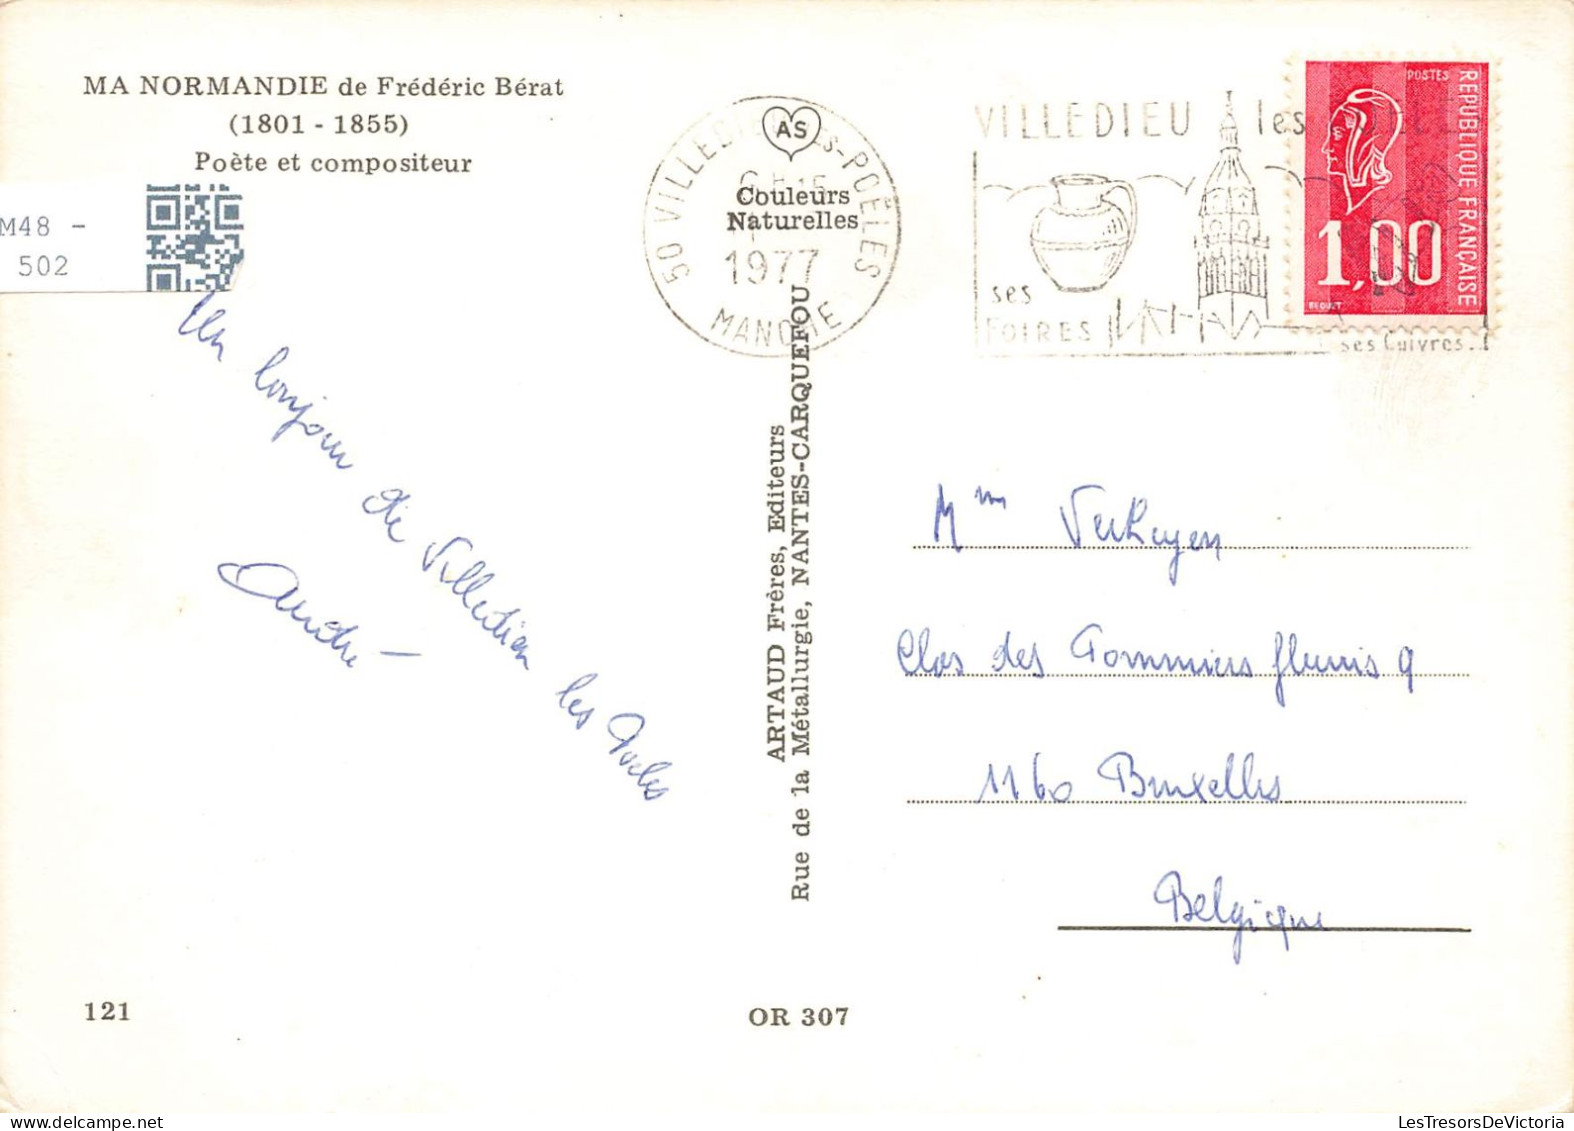 MA NORMANDIE de Frédéric Bérat
(1801 - 1855)
Poète et compositeur
M48 -
502
Un bonjour de Villedieu les Poëles
André
121
AS
Couleurs
Naturelles
50 VILLEDIEU-LES-POËLES
1977
MANCHE
VILLEDIEU les
ses
FOIRES
ses Cuivres.
POSTES
REPUBLIQUE FRANÇAISE
1,00
BEQUET
ARTAUD Frères, Editeurs
Rue de la Métallurgie, NANTES-CARQUEFOU
Mme Verheyen
Clos des Pommiers fleuris 9
1160 Bruxelles
Belgique
OR 307
LesTresorsDeVictoria